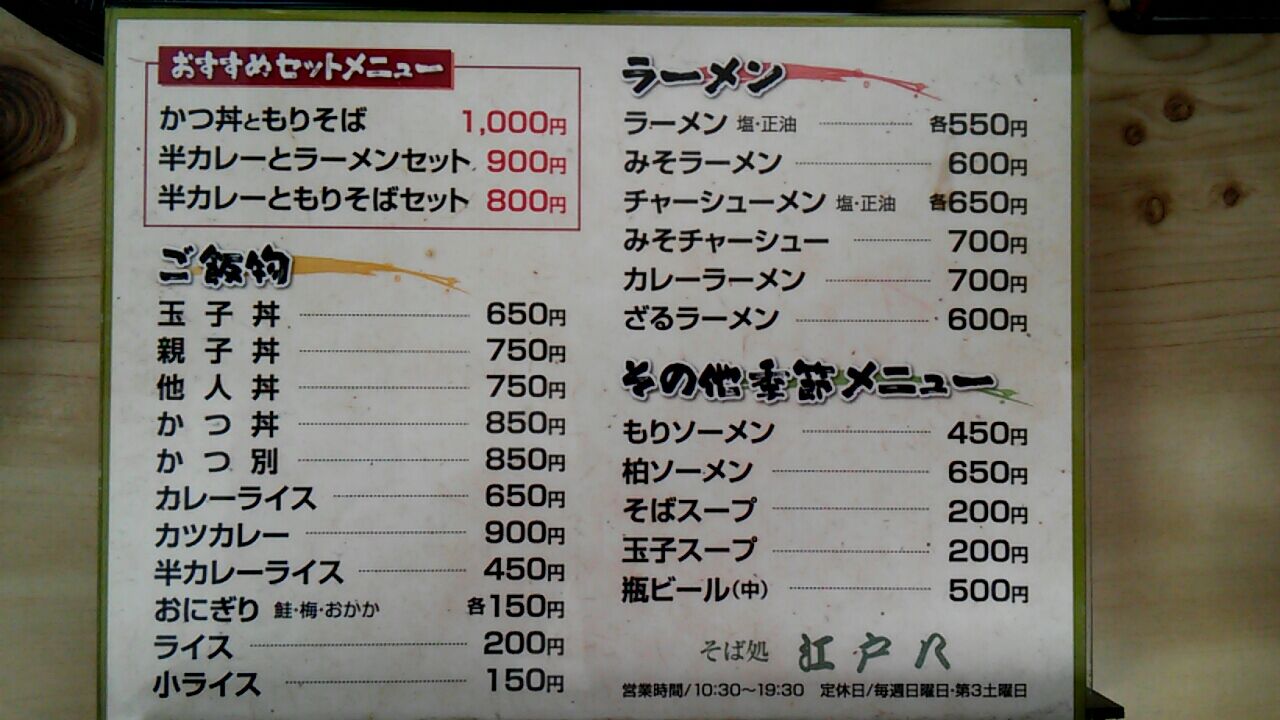 おすすめセットメニュー
かつ丼ともりそば 1,000円
半カレーとラーメンセット 900円
半カレーともりそばセット 800円
ご飯物
玉子丼 650円
親子丼 750円
他人丼 750円
かつ丼 850円
かつ別 850円
カレーライス 650円
カツカレー 900円
半カレーライス 450円
おにぎり 鮭・梅・おかか 各150円
ライス 200円
小ライス 150円
ラーメン
ラーメン 塩・正油 各550円
みそラーメン 600円
チャーシューメン 塩・正油 各650円
みそチャーシュー 700円
カレーラーメン 700円
ざるラーメン 600円
その他季節メニュー
もりソーメン 450円
柏ソーメン 650円
そばスープ 200円
玉子スープ 200円
瓶ビール(中) 500円
そば処 江戸八
営業時間/10:30〜19:30 定休日/毎週日曜日・第3土曜日